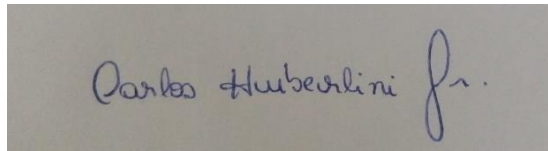 Carlos Humberlini Jr.